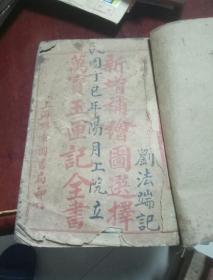 劉法端記
新增補繪圖選擇
民國丁巳年陽月工院立
萬寶玉匣記全書